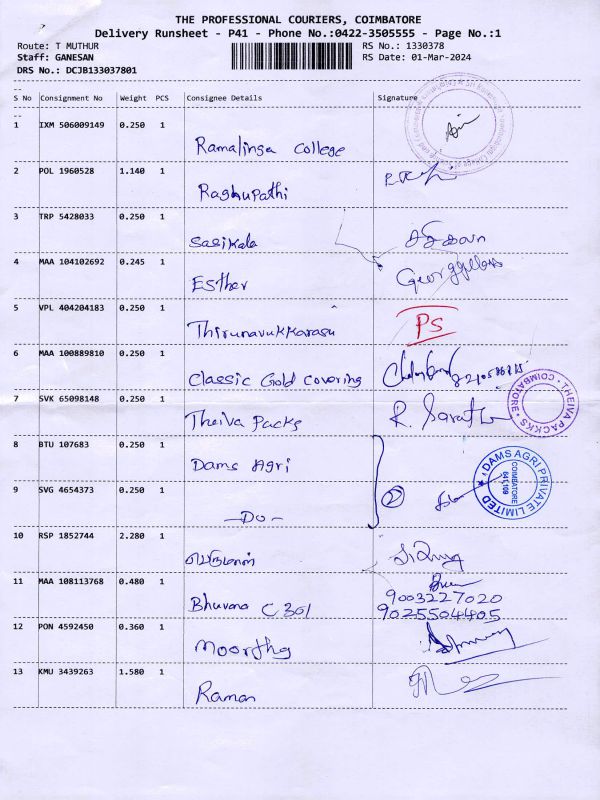 THE PROFESSIONAL COURIERS, COIMBATORE
Delivery Runsheet - P41 - Phone No.:0422-3505555 - Page No.:1
Route: T MUTHUR RS No.: 1330378
Staff: GANESAN RS Date: 01-Mar-2024
DRS No.: DCJB133037801
--
S No Consignment No Weight PCS Consignee Details Signature
--
1 IXM 506009149 0.250 1 Ramalinga College
2 POL 1960528 1.140 1 Raghupathi
3 TRP 5428033 0.250 1 Sasikala
4 MAA 104102692 0.245 1 Esther
5 VPL 404204183 0.250 1 Thirunavukkarasu PS
6 MAA 100889810 0.250 1 Classic Gold Covering
7 SVK 65098148 0.250 1 Theiva Packs R. Sarath
THEIVA PACKKS COIMBATORE
8 BTU 107683 0.250 1 Dams Agri
9 SVG 4654373 0.250 1 -Do- 2
DAMS AGRI PRIVATE LIMITED COIMBATORE 641,109
10 RSP 1852744 2.280 1 பெருமாள்
11 MAA 108113768 0.480 1 Bhuvana C 301 9003227020
9025504405
12 PON 4592450 0.360 1 Moorthy
13 KMU 3439263 1.580 1 Raman